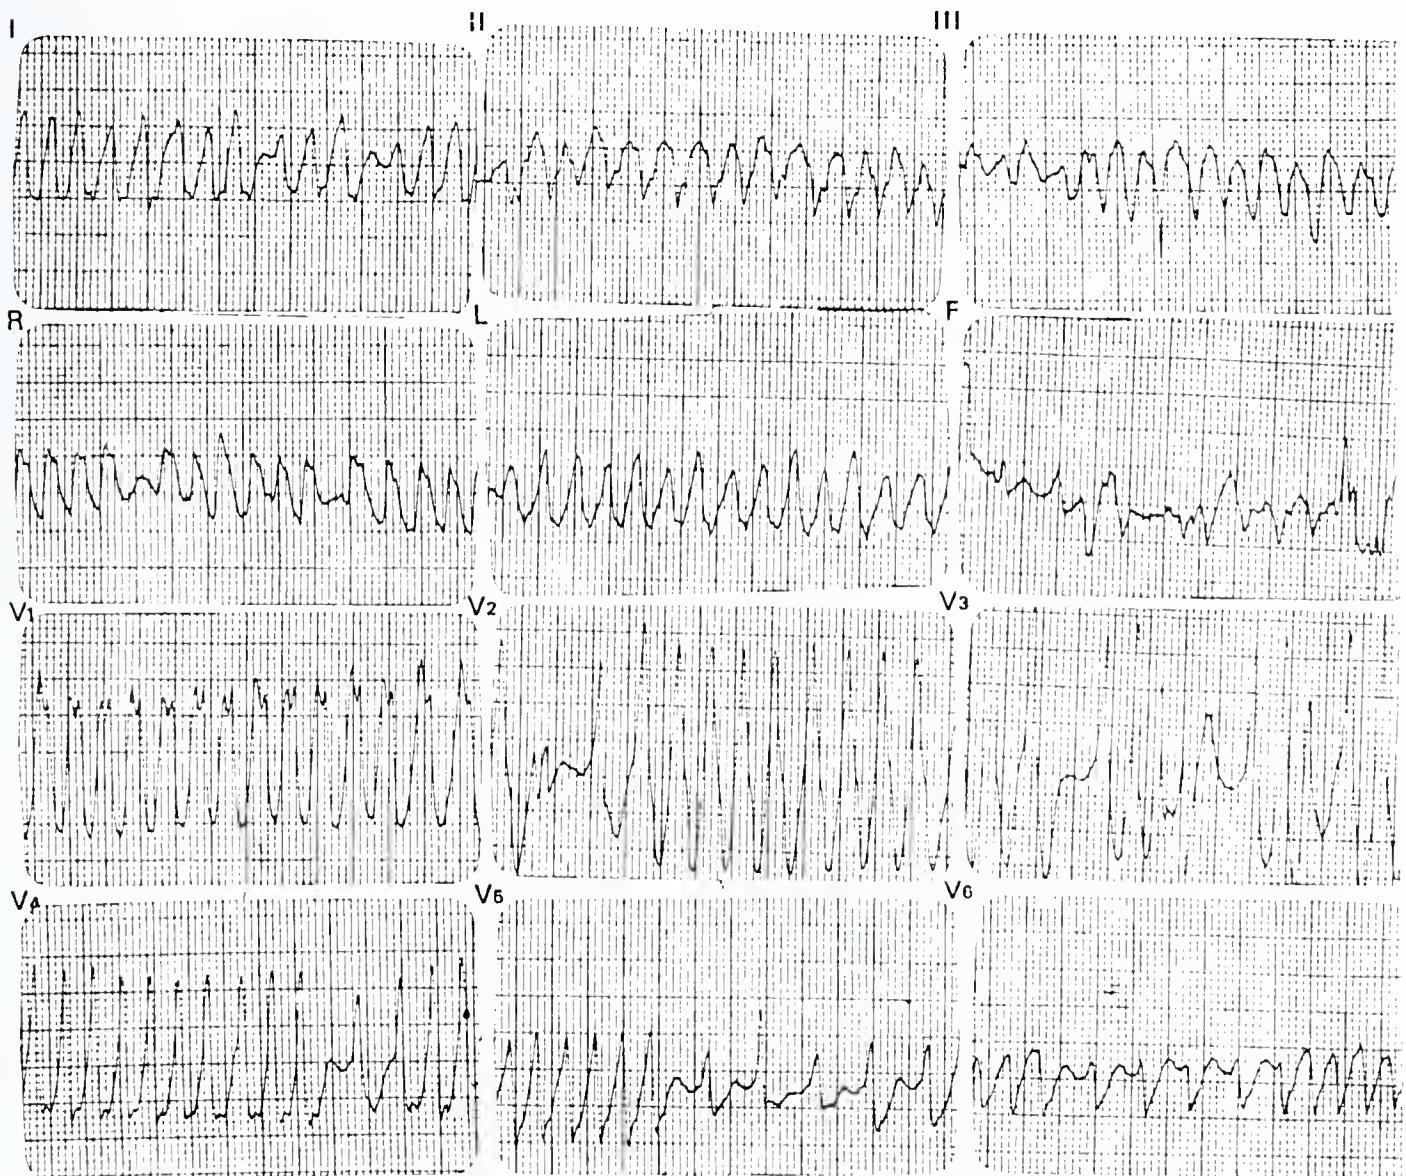 I II III
R L F
V1 V2 V3
V4 V5 V6